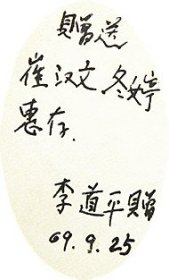 贈送
崔汉文 冬婷
惠存.
李道平贈
69.9.25